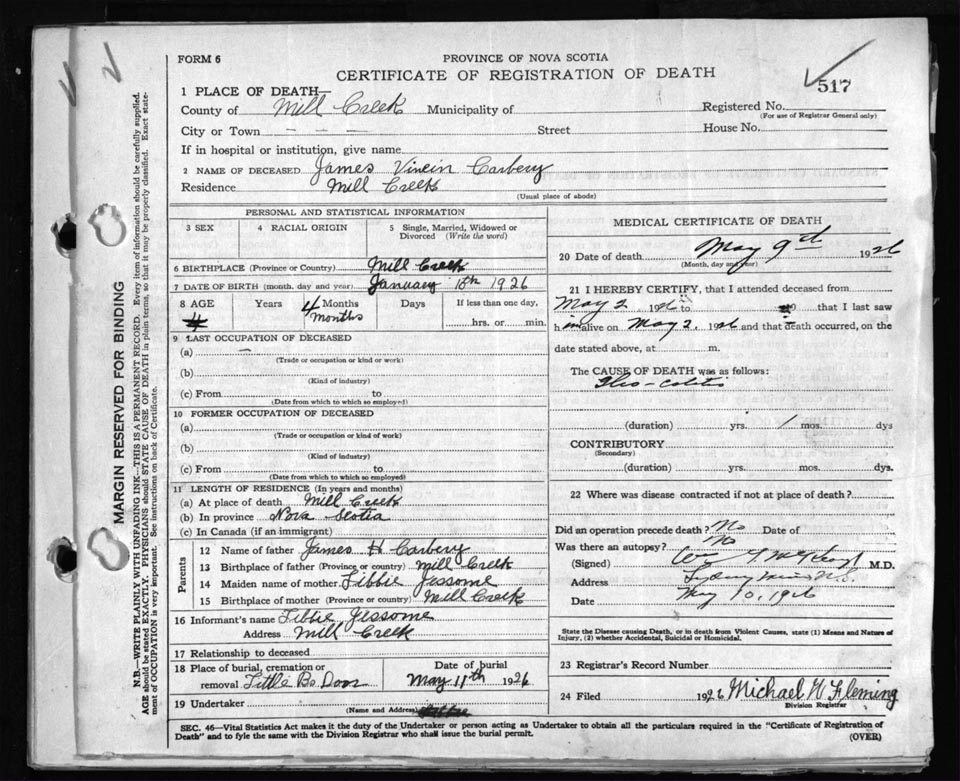 FORM 6
PROVINCE OF NOVA SCOTIA
CERTIFICATE OF REGISTRATION OF DEATH
517
1 PLACE OF DEATH—
County of Mill Creek Municipality of
Registered No.
(For use of Registrar General only)
City or Town — — — Street House No.
If in hospital or institution, give name
2 NAME OF DECEASED James Vincin Carbery
Residence Mill Creek
(Usual place of abode)
PERSONAL AND STATISTICAL INFORMATION
3 SEX 4 RACIAL ORIGIN 5 Single, Married, Widowed or Divorced (Write the word)
6 BIRTHPLACE (Province or Country) Mill Creek
7 DATE OF BIRTH (month, day and year) January 10th 1926
8 AGE Years 4 Months Days If less than one day,
4 months hrs. or min.
9 LAST OCCUPATION OF DECEASED
(a) —
(Trade or occupation or kind or work)
(b)
(Kind of industry)
(c) From to
(Date from which to which so employed)
10 FORMER OCCUPATION OF DECEASED
(a)
(Trade or occupation or kind of work)
(b)
(Kind of industry)
(c) From to
(Date from which to which so employed)
11 LENGTH OF RESIDENCE (In years and months)
(a) At place of death Mill Creek
(b) In province Nova Scotia
(c) In Canada (if an immigrant)
Parents
12 Name of father James H Carbery
13 Birthplace of father (Province or country) Mill Creek
14 Maiden name of mother Libbie Jessome
15 Birthplace of mother (Province or country) Mill Creek
16 Informant's name Libbie Jessome
Address Mill Creek
17 Relationship to deceased
18 Place of burial, cremation or removal Little B. Door
Date of burial
May 11th 1926
19 Undertaker
(Name and Address)
MEDICAL CERTIFICATE OF DEATH
20 Date of death May 9d 1926
(Month, day and year)
21 I HEREBY CERTIFY, that I attended deceased from
May 2 1926 to that I last saw
him alive on May 2. 1926 and that death occurred, on the
date stated above, at m.
The CAUSE OF DEATH was as follows:
Ileo-colitis
(duration) yrs. 1 mos. dys
CONTRIBUTORY
(Secondary)
(duration) yrs. mos. dys.
22 Where was disease contracted if not at place of death?
Did an operation precede death? No Date of
Was there an autopsy? No
(Signed) M.D.
Address Sydney Mines N.S.
Date May 10, 1926
State the Disease causing Death, or in death from Violent Causes, state (1) Means and Nature of
Injury, (2) whether Accidental, Suicidal or Homicidal.
23 Registrar's Record Number
24 Filed 1926 Michael W Fleming
Division Registrar
SEC. 46—Vital Statistics Act makes it the duty of the Undertaker or person acting as Undertaker to obtain all the particulars required in the "Certificate of Registration of
Death" and to fyle the same with the Division Registrar who shall issue the burial permit.
(OVER)
MARGIN RESERVED FOR BINDING
N.B.—WRITE PLAINLY WITH UNFADING INK—THIS IS A PERMANENT RECORD. Every item of information should be carefully supplied.
AGE should be stated EXACTLY. PHYSICIANS should STATE CAUSE OF DEATH in plain terms, so that it may be properly classified. Exact state-
ment of OCCUPATION is very important. See instructions on back of Certificate.